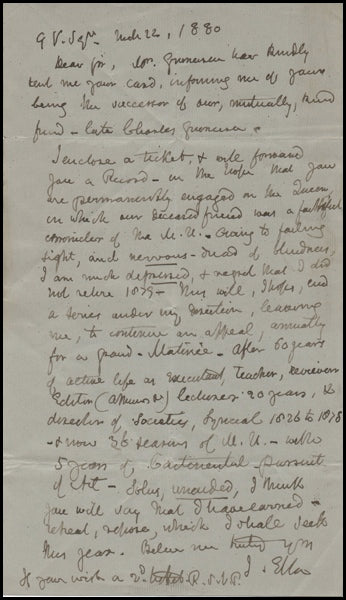 9 V. Sqre March 22, 1880
Dear Sir, Mr. Gruneisen has kindly
sent me your card, informing me of your
being the successor of our, mutually, kind
friend - late Charles Gruneisen.
I enclose a ticket, & will forward
you a Record - in the hope that you
are permanently engaged on the Queen,
in which our deceased friend was a faithful
chronicler of the M. U. - Owing to failing
sight, and nervous - dread of blindness,
I am much depressed, & regret that I did
not retire 1879 - This will, I hope, end
a series under my direction, leaving
me, to continue an appeal, annually
for a grand - Matinée - After 60 years
of active life as Executant, Teacher, Reviewer
Editor (Annual) lecturer 20 years, &
director of Societies, Special 1826 to 1878
- & now 36 seasons of M. U. - with
5 years of Continental pursuit
of Art - Solus, unaided, I think
you will say that I have earned -
retreat, repose, which I shall seek
this year. Believe me truly yrs
J. Ella
If you wish a 2d ticket R.S.V.P.